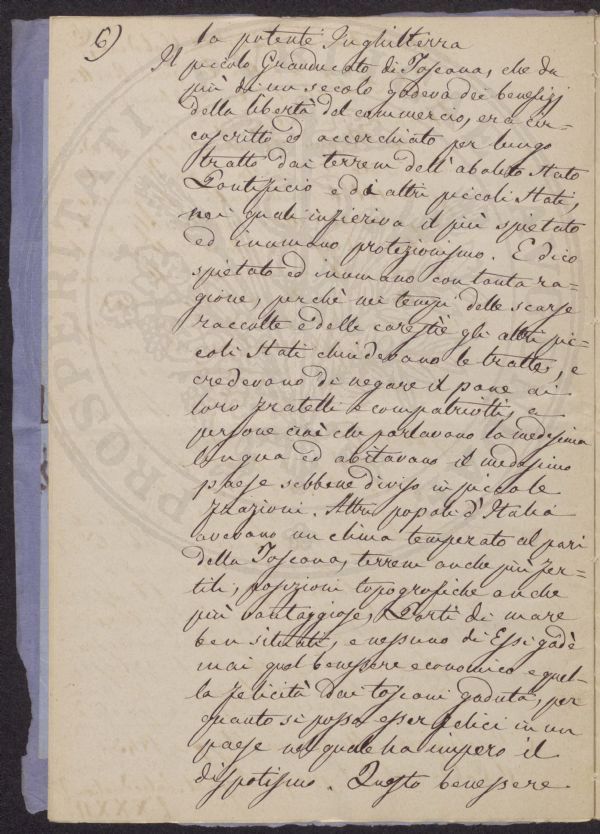 6)
la potente Inghilterra
Il piccolo Granducato di Toscana, che da
più di un secolo godeva dei benefizj
della libertà del commercio, era cir=
coscritto ed accerchiato per lungo
tratto dai terreni dell'abolito Stato
Pontificio e di altri piccoli Stati,
nei quali infieriva il più spietato
ed inumano protezionismo. E dico
spietato ed inumano con tanta ra=
gione, perchè nei tempi delle scarse
raccolte e delle carestie gli altri pic=
coli Stati chiudevano le tratte, e
credevano di negare il pane ai
loro fratelli e compatriotti, a
persone cioè che parlavano la medesima
lingua ed abitavano il medesimo
paese sebbene diviso in piccole
frazioni. Altri popoli d'Italia
avevano un clima temperato al pari
della Toscana, terreni anche più fer=
tili, posizioni topografiche anche
più vantaggiose, Porti di mare
ben situati, e nessuno di Essi godè
mai quel benessere economico e quel=
la felicità dai toscani goduta, per
quanto si possa esser felici in un
paese nel quale ha impero il
dispotismo. Questo benessere
PROSPERITATI